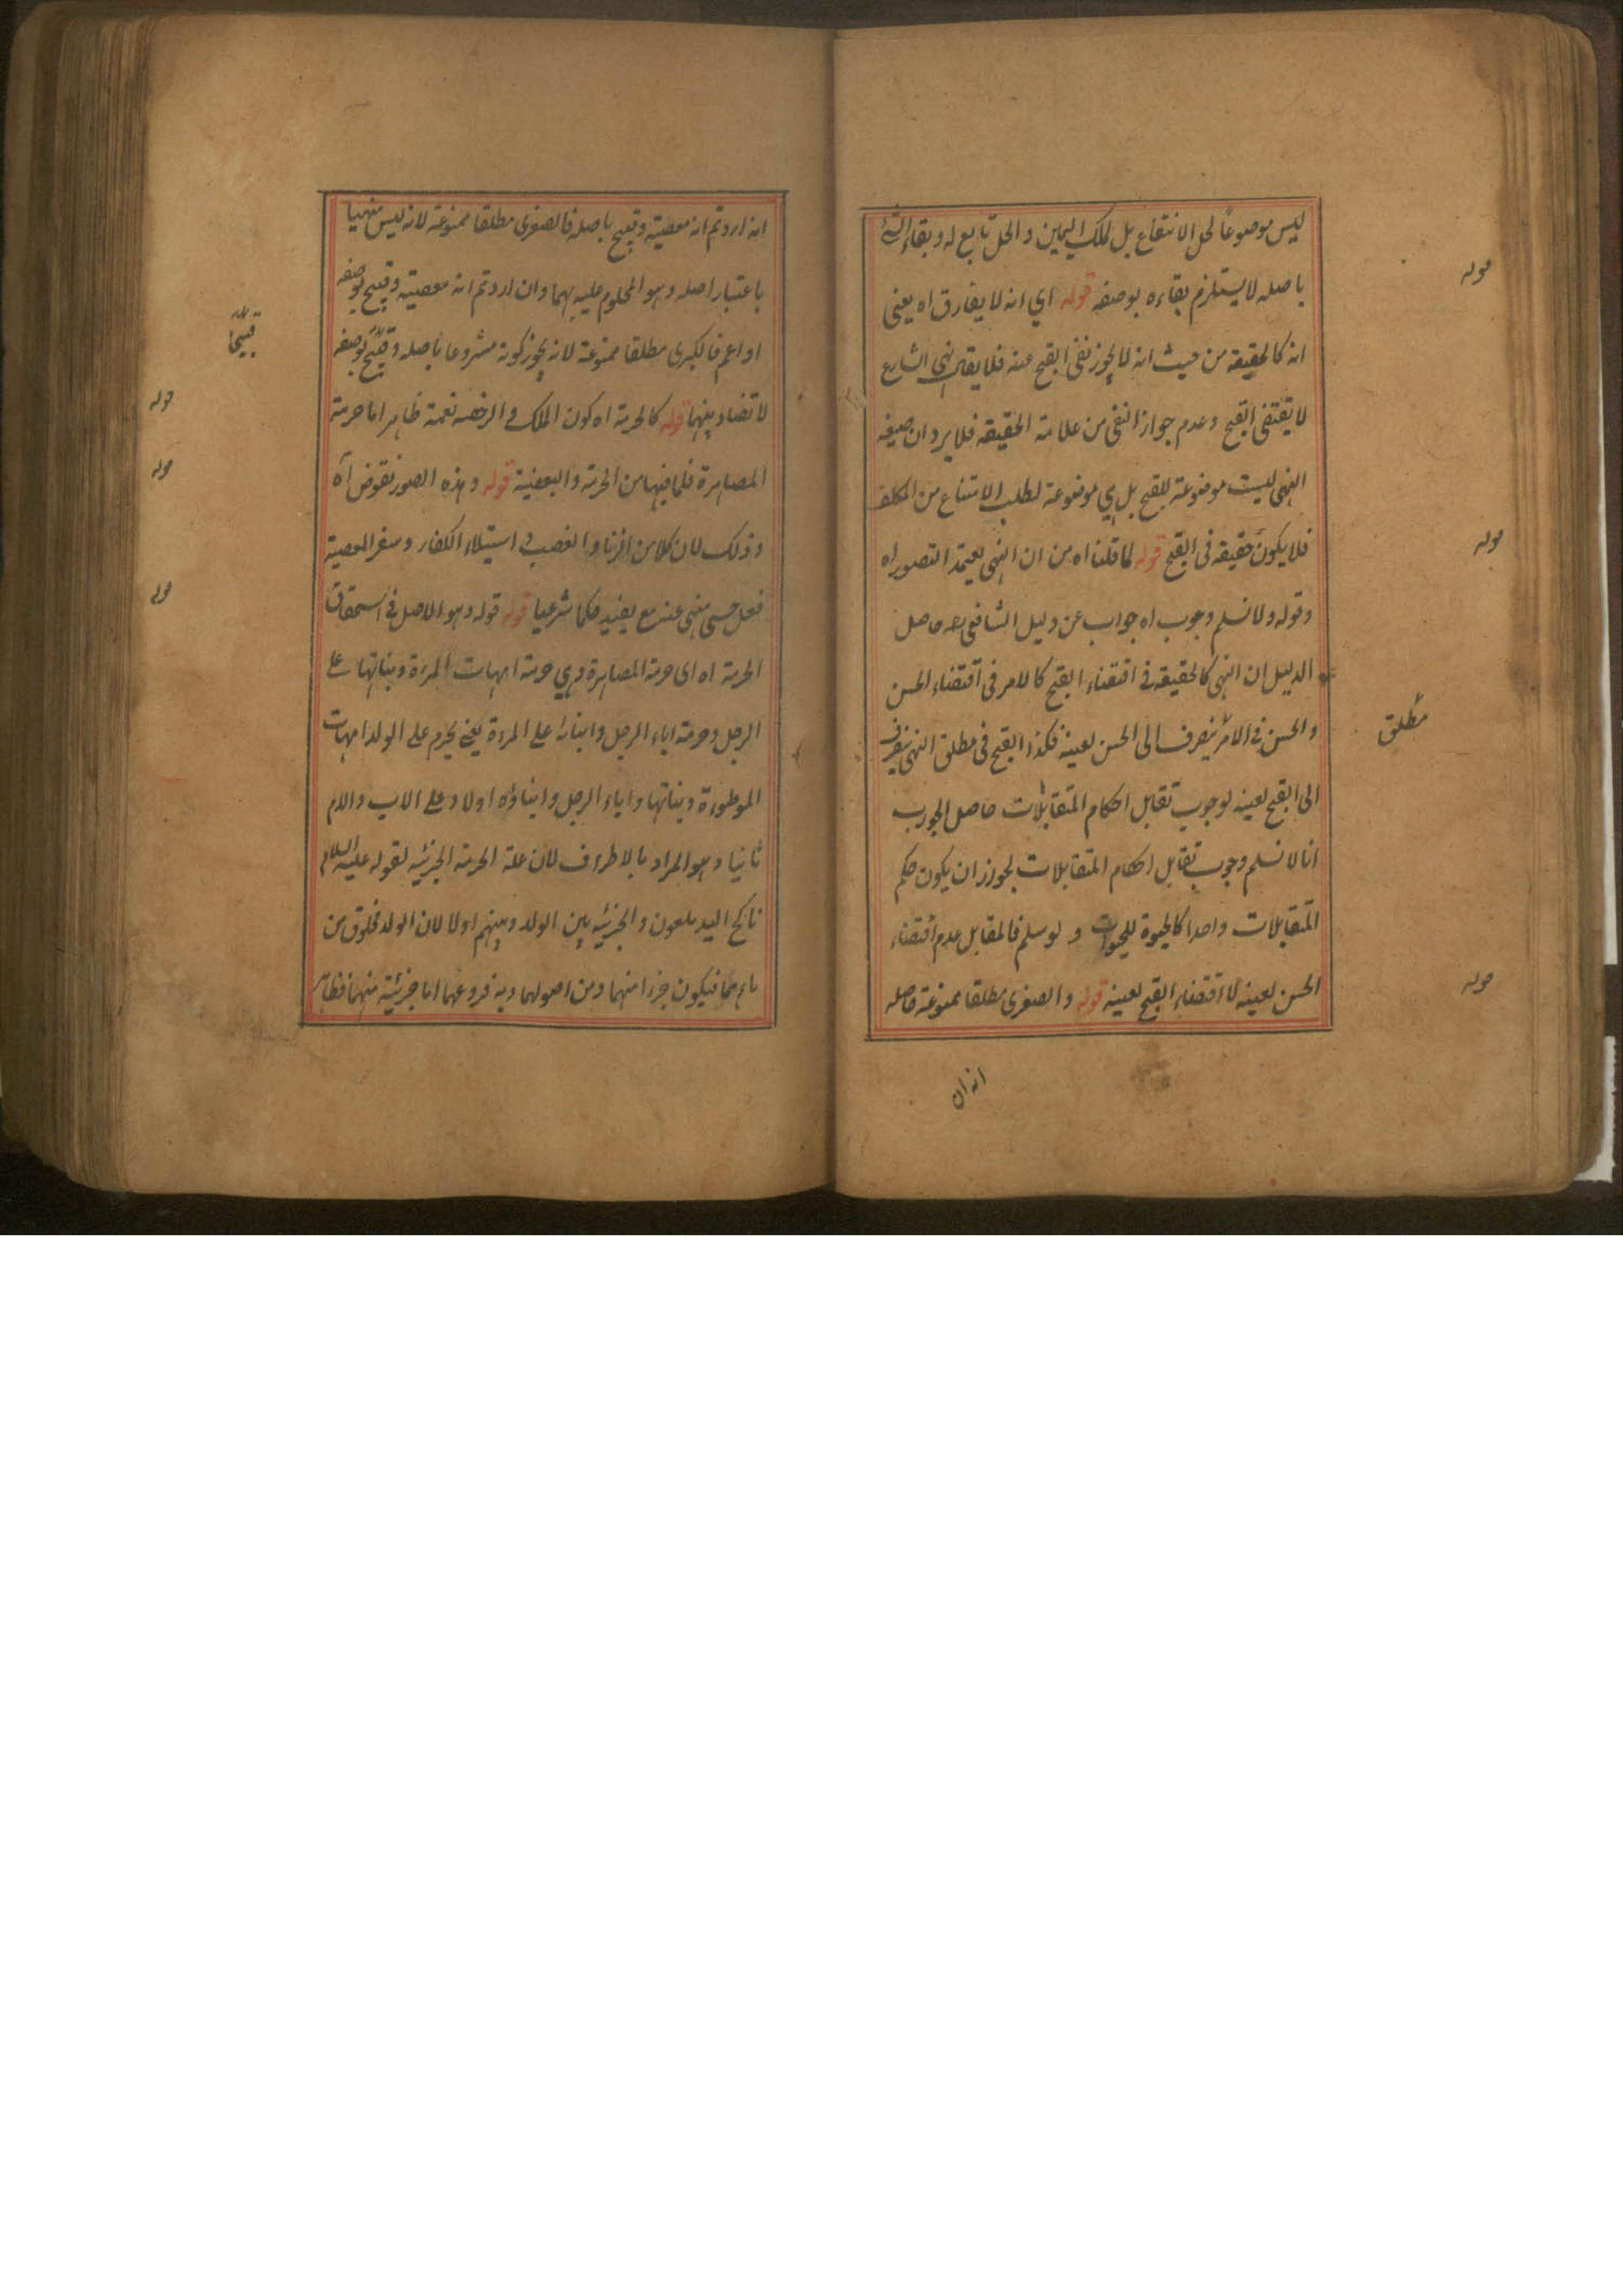 ليس موضوعا لحل الانتفاع بل لملك اليمين والحل تابع له وبقاء الشئ
باصله لا يستلزم بقاءه بوصفه قوله اي انه لا يفارق اه يعنى
انه كالحقيقة من حيث انه لا يجوز نفى القبح عنه فلا يقال نهى الشارع
لا يقتضى القبح وعدم جواز النفى من علامة الحقيقة فلا يرد ان صيغة
النهى ليست موضوعة للقبح بل هي موضوعة لطلب الامتناع من المكلف
فلا يكون حقيقة فى القبح قوله لما قلنا اه من ان النهى يعتمد التصور اه
وقوله ولا نسلم وجوب اه جواب عن دليل الشافعى رحه حاصل
الدليل ان النهى كالحقيقة فى اقتضاء القبح كالامر فى اقتضاء الحسن
والحسن فى الامر ينصرف الى الحسن لعينه فكذا القبح فى مطلق النهى ينصرف
الى القبح لعينه لوجوب تقابل احكام المتقابلات حاصل الجواب
انا لا نسلم وجوب تقابل احكام المتقابلات لجواز ان يكون حكم
المتقابلات واحدا كالحيوة للحيوانات ولو سلم فالمقابل عدم اقتضاء
الحسن لعينه لا اقتضاء القبح لعينه قوله والصغرى مطلقا ممنوعة حاصله
انه ان
قوله
قوله
مطلق
قوله
انه اردتم انه معصية وقبيح باصله فالصغرى مطلقا ممنوعة لانه ليس منهيا
باعتبار اصله وهو المحكوم عليه بهما وان اردتم انه معصية وقبيح بوصفه
او اعم فالكبرى مطلقا ممنوعة لانه يجوز كونه مشروعا باصله وقبيح بوصفه
لا تضاد بينهما قوله كالحرمة اه كون الملك والرخصة نعمة ظاهر اما حرمة
المصاهرة فلما فيها من الحرمة والبعضية قوله وهذه الصور نقوض اه
وذلك لان كلا من الزنا والغصب واستيلاء الكفار وسفر المعصية
فعل حسى منهى عنه مع يفيد حكما شرعيا قوله قوله وهو الاصل فى استحقاق
الحرمة اه اى حرمة المصاهرة وهي حرمة امهات المرءة وبناتها على
الرجل وحرمة اباء الرجل وابنائه على المرءة يعنى يحرم على الولد امهات
الموطوءة وبناتها واباء الرجل وابناؤه اولا وعلى الاب والام
ثانيا وهو المراد بالاطراف لان علة الحرمة الجزئية لقوله عليه السلام
ناكح اليد ملعون والجزئية بين الولد وبينهم اولا لان الولد مخلوق من
فيكون جزءا منهما ومن اصولهما وبه فروعهما اما جزئية منهما فظاهر
قبيحا
قوله
قوله
قوله